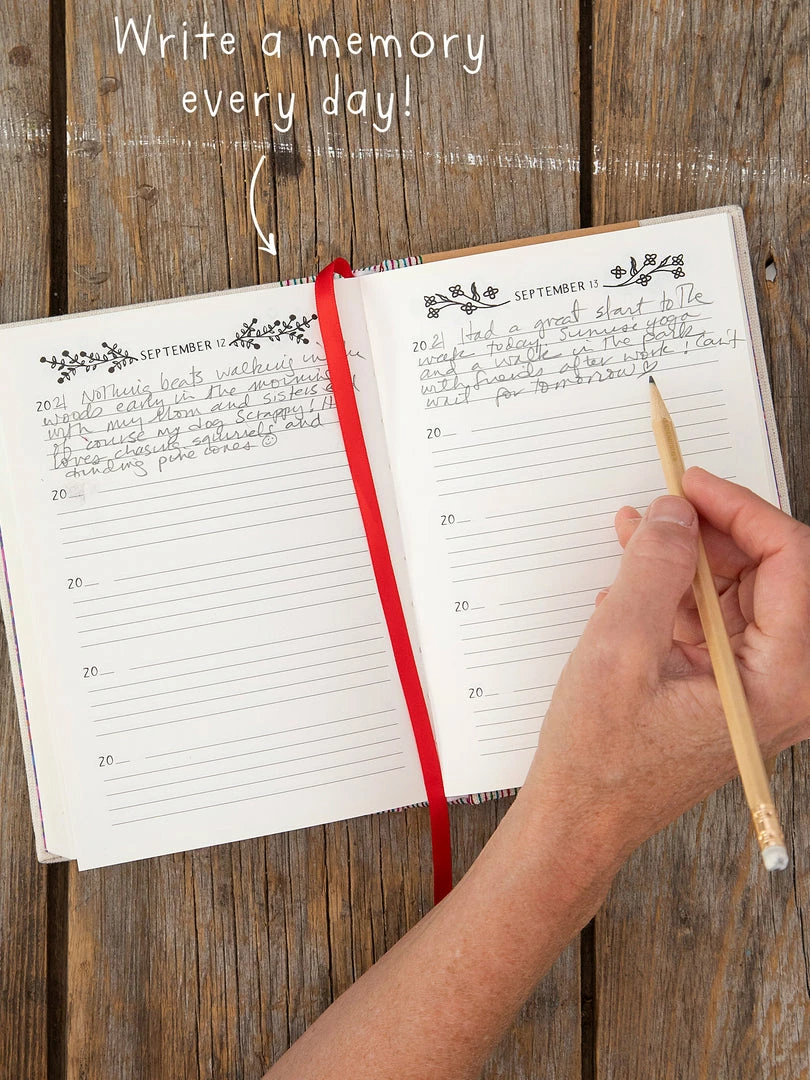 Write a memory
every day!
SEPTEMBER 12
2021 Nothing beats walking in the
woods early in the morning
with my Mom and sisters and
of course my dog Scrappy! He
loves chasing squirrels and
finding pine cones ☺
20__
20__
20__
20__
SEPTEMBER 13
2021 Had a great start to the
week today! Sunrise yoga
and a walk in the park
with friends after work! Can't
wait for tomorrow ♡
20__
20__
20__
20__